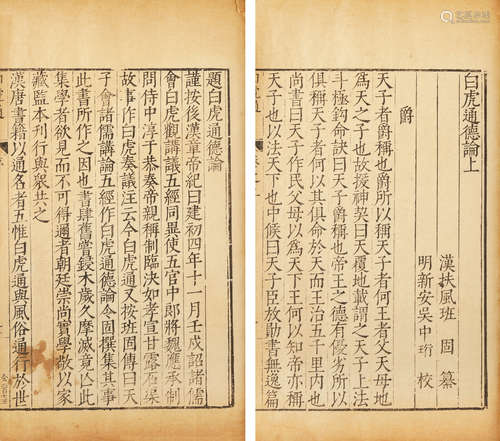 白虎通德論上
漢扶風班固纂
明新安吳中珩校
爵
天子者爵稱也爵所以稱天子者何王者父天母地
爲天之子也故援神契曰天覆地載謂之天子上法
斗極鈎命訣曰天子爵稱也帝王之德有優劣所以
俱稱天子者何以其俱命於天而王治五千里內也
尚書曰天子作民父母以爲天下王何以知帝亦稱
天子也以法天下也中候曰天子臣放勛書無逸篇
題白虎通德論
謹按後漢章帝紀曰建初四年十一月壬戌詔諸儒
會白虎觀講議五經同異使五官中郎將魏應承制
問侍中淳于恭奏帝親稱制臨決如孝宣甘露石渠
故事作白虎奏議注云今白虎通又按班固傳曰天
子會諸儒講論五經作白虎通德論令固撰集其事
此書所作之因也書肆舊嘗鋟木歲久摩滅竟亡此
集學者欲見而不可得邇者朝廷崇尚實學敬以家
藏監本刊行與衆共之
漢唐書籍以通名者五惟白虎通與風俗通行於世